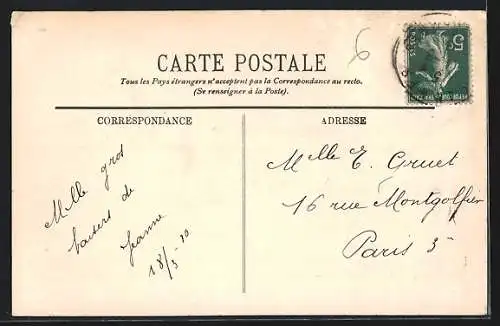 6
CARTE POSTALE
Tous les Pays étrangers n'acceptent pas la Correspondance au recto.
(Se renseigner à la Poste).
CORRESPONDANCE
ADRESSE
Mille gros
baisers de
Jeanne
18/5 10
Mlle E. Gruet
16 rue Montgolfier
Paris 3e
5c